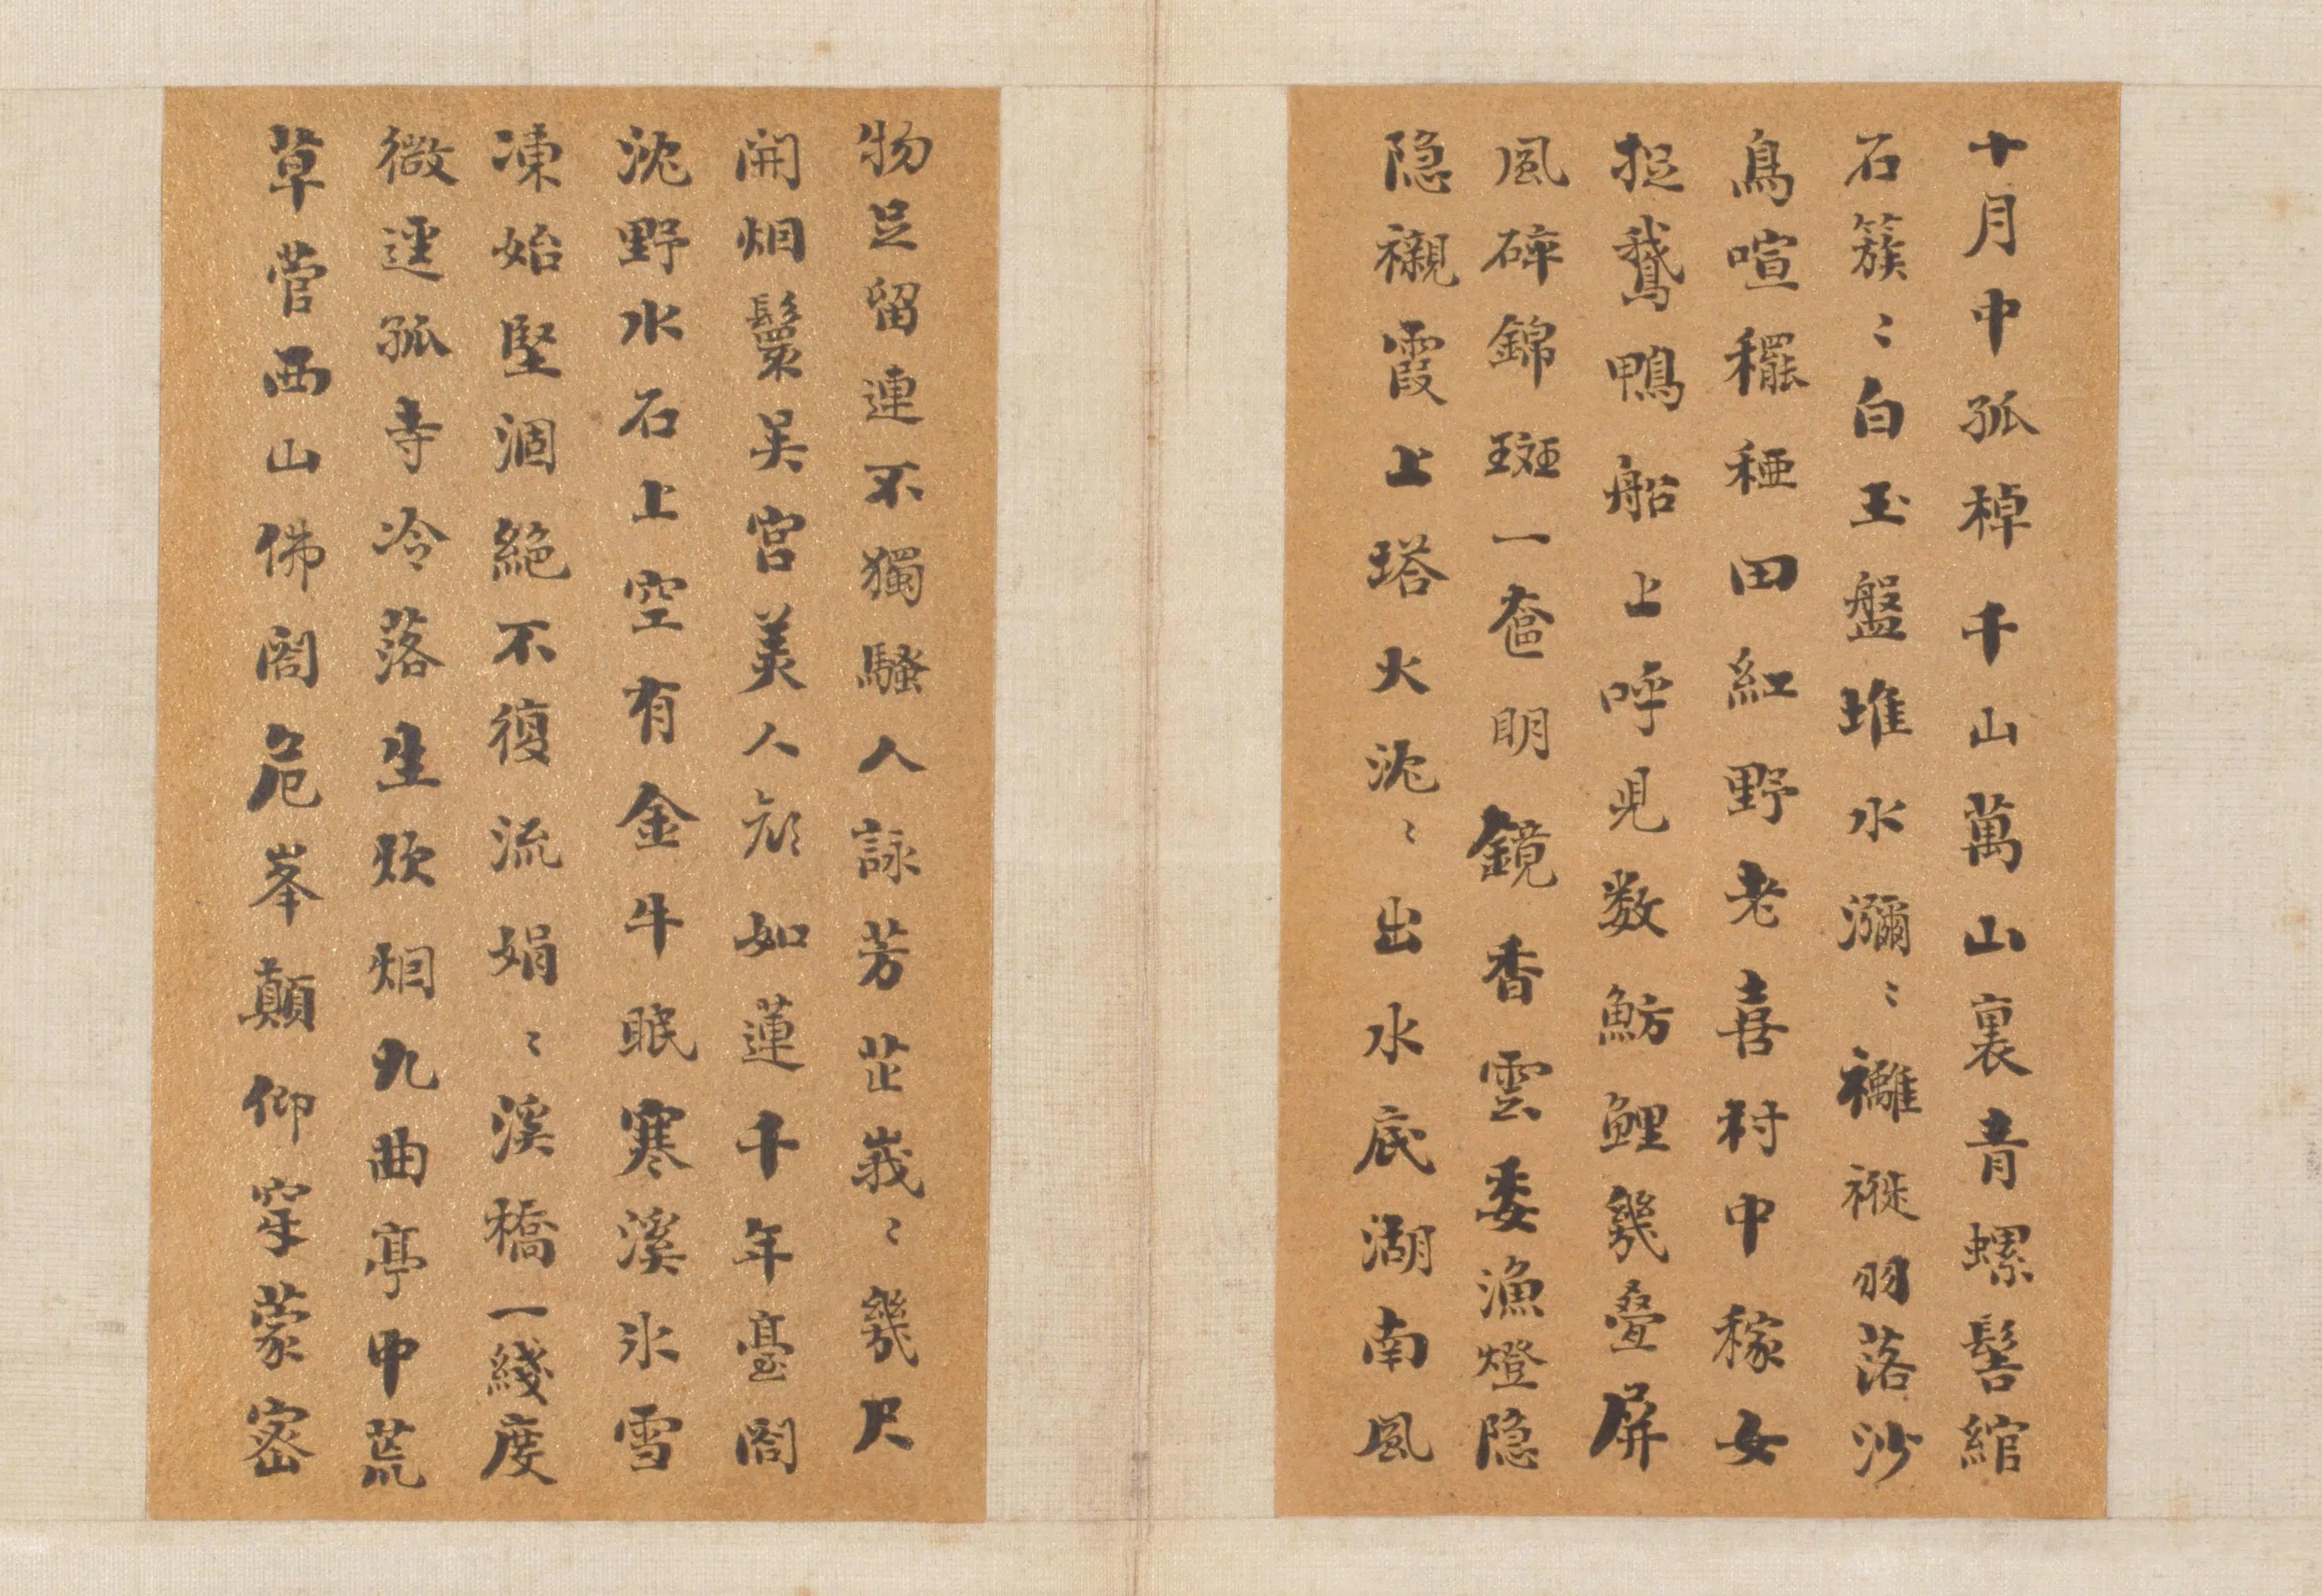 十月中孤棹千山萬山裏青螺髻綰
石簇〻白玉盤堆水瀰〻襳褷羽落沙
鳥喧䆉稏田紅野老喜村中稼女
捉鵞鴨船上呼兒数魴鯉幾疊屏
風碎錦斑一奩明鏡香雲委漁燈隐
隐襯霞上塔火沈〻出水底湖南風
物足留連不獨騷人詠芳芷峩〻幾尺
開烟鬟吴宮美人顔如蓮千年臺閣
沈野水石上空有金牛眠寒溪氷雪
凍始堅涸絕不復流娟〻溪橋一綫度
微逕孤寺冷落生炊烟九曲亭中荒
草菅西山佛閣危峯顛仰穿蒙密